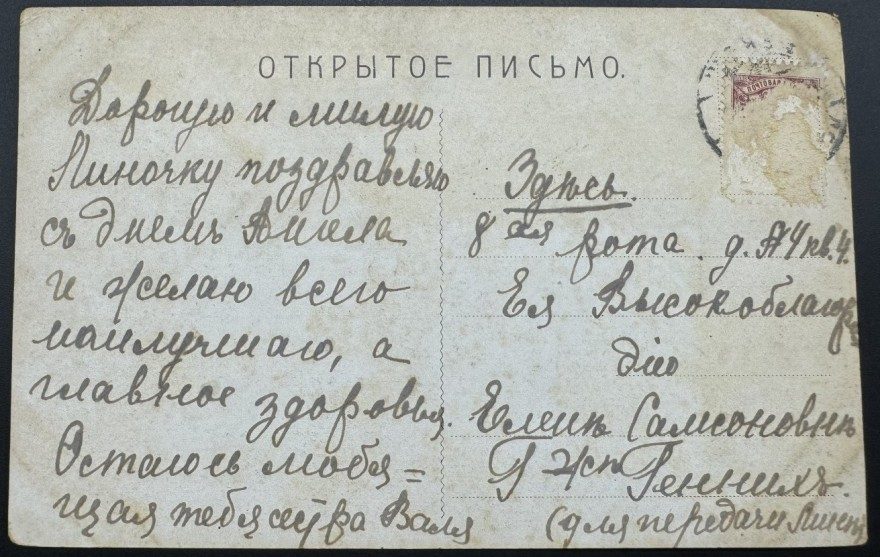 ОТКРЫТОЕ ПИСЬМО.
Дорогую и милую
Линочку поздравляю
съ днемъ Ангела
и желаю всего
наилучшаго, а
главное здоровья.
Остаюсь любя=
щая тебя сестра Валя
ПОЧТОВАЯ
Здѣсь.
8ая рота. д. №4 кв. 4.
Ея Высокоблагоро
дію
Еленѣ Самсоновнѣ
Гжѣ Геннихъ.
(для передачи Линѣ)